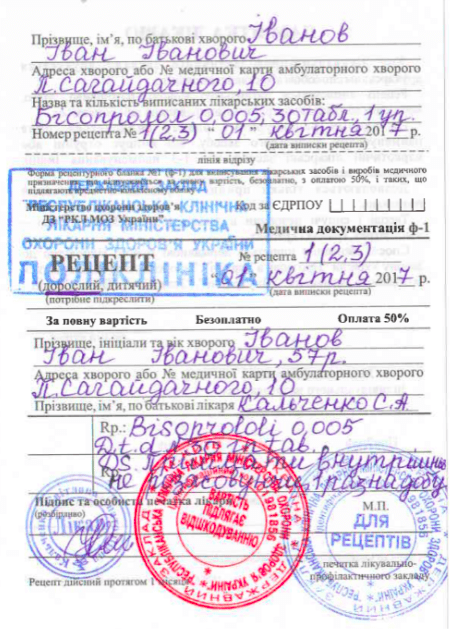 Прізвище, ім'я, по батькові хворого Іванов
Іван Іванович
Адреса хворого або № медичної карти амбулаторного хворого
П.Сагайдачного, 10
Назва та кількість виписаних лікарських засобів:
Бісопролол 0,005, 30табл, 1 уп.
Номер рецепта № 1(2,3) "01" квітня 2017 р.
(дата виписки рецепта)
лінія відрізу
Форма рецептурного бланка №1 (ф-1) для виписування лікарських засобів і виробів медичного
призначення, вартість, безоплатно, з оплатою 50%, і таких, що
підлягають предметно-кількісному обліку
ДЕРЖАВНИЙ ЗАКЛАД
РЕСПУБЛІКАНСЬКА КЛІНІЧНА
ЛІКАРНЯ МІНІСТЕРСТВА
ОХОРОНИ ЗДОРОВ'Я УКРАЇНИ
ПОЛІКЛІНІКА
Міністерство охорони здоров'я
ДЗ "РКЛ МОЗ України"
Код за ЄДРПОУ
Медична документація ф-1
РЕЦЕПТ
№ рецепта 1(2,3)
(дорослий, дитячий)
"01" квітня 2017 р.
(потрібне підкреслити)
(дата виписки рецепта)
За повну вартість Безоплатно Оплата 50%
Прізвище, ініціали та вік хворого Іванов
Іван Іванович, 57р.
Адреса хворого або № медичної карти амбулаторного хворого
П.Сагайдачного, 10
Прізвище, ім'я, по батькові лікаря Кальченко С.А
Rp.: Bisoprololi 0,005
D.t.d. in tab.
Rp.:
внутрішньо
не розжовуючи 1 раз на добу
Підпис та особиста печатка лікаря
(розбірливо)
М.П.
ВАРТІСТЬ
ПІДЛЯГАЄ
ВІДШКОДУВАННЮ
ДЛЯ
РЕЦЕПТІВ
печатка лікувально-
профілактичного закладу
Рецепт дійсний протягом 1 місяця